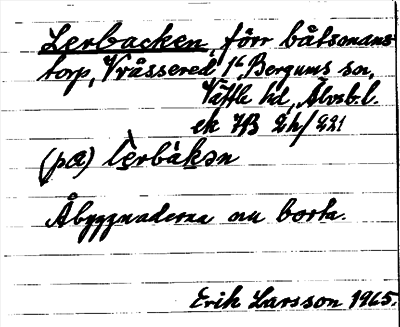 Lerbacken, förr båtsmans
torp, Vråssered 1⁶, Bergums sn,
Vättle hd, Älvsb.l.
ek 7B 2h/221
(pa) lèrbàkən
Åbyggnaderna nu borta.
Erik Larsson 1965.